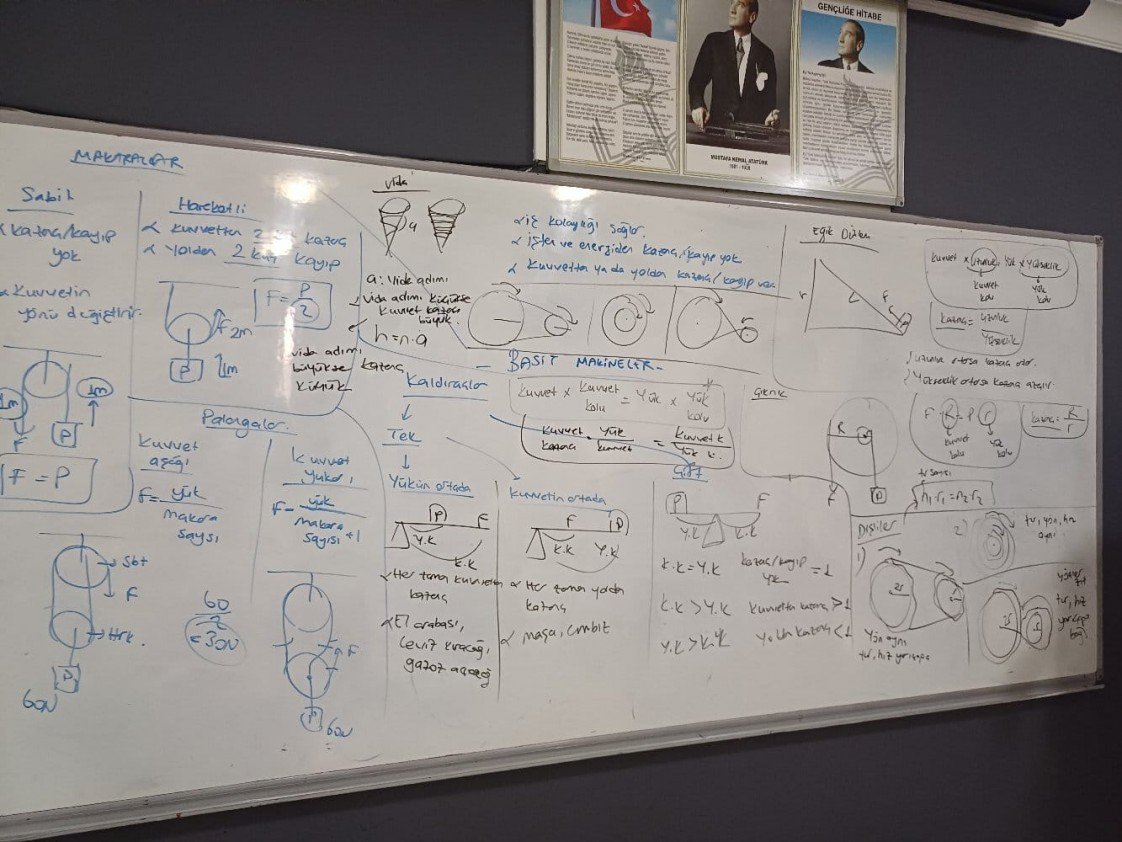 GENÇLİĞE HİTABE
MUSTAFA KEMAL ATATÜRK
1881 - 1938
MAKARALAR
Sabit
kazanç/kayıp
yok
Kuvvetin
yönü değiştirir.
1m
1m
F
P
F = P
Hareketli
Kuvvetten 2 kat kazanç
Yoldan 2 kat kayıp
F = P/2
F 2m
P
1m
Vida
a
a: Vida adımı
vida adımı küçükse
kuvvet kazancı
büyük.
h = n.a
vida adımı
büyükse kazanç
küçük
iş kolaylığı sağlar.
işten ve enerjiden kazanç/kayıp yok
Kuvvetten ya da yoldan kazanç/kayıp var.
BASİT MAKİNELER
Eğik Düzlem
kuvvet x uzunluk = yük x yükseklik
kuvvet
kolu
yük
kolu
kazanç = uzunluk / yükseklik
uzunluk artarsa kazanç artar.
Yükseklik artarsa kazanç azalır.
Palangalar
kuvvet
aşağı
F = yük / makara sayısı
Sbt
F
Hrk.
P
60N
60/2
= 30N
kuvvet
yukarı
F = yük / makara sayısı +1
F
P
60N
Kaldıraçlar
kuvvet x kuvvet kolu = Yük x Yük kolu
kuvvet kazancı = Yük / kuvvet = kuvvet k. / Yük k.
Tek
Yükün ortada
P
F
Y.K
K.K
Her zaman kuvvetten
kazanç
El arabası,
ceviz kıracağı,
gazoz açacağı
kuvvetin ortada
F
P
K.K
Y.K
Her zaman yoldan
kazanç
maşa, cımbız
Çift
P
F
Y.K
K.K
K.K = Y.K kazanç/kayıp yok = 1
K.K > Y.K kuvvetten kazanç > 1
Y.K > K.K Yoldan kazanç < 1
Çıkrık
R
F
P
F . R = P . r
kuvvet
kolu
yük
kolu
kazanç = R / r
tur sayısı
n1.r1 = n2.r2
Dişliler
1)
2r
Yön aynı
tur, hız yarıçapa
2)
tur, yön, hız
aynı
2r
r
yönler
zıt
tur, hız
yarıçapa
bağlı